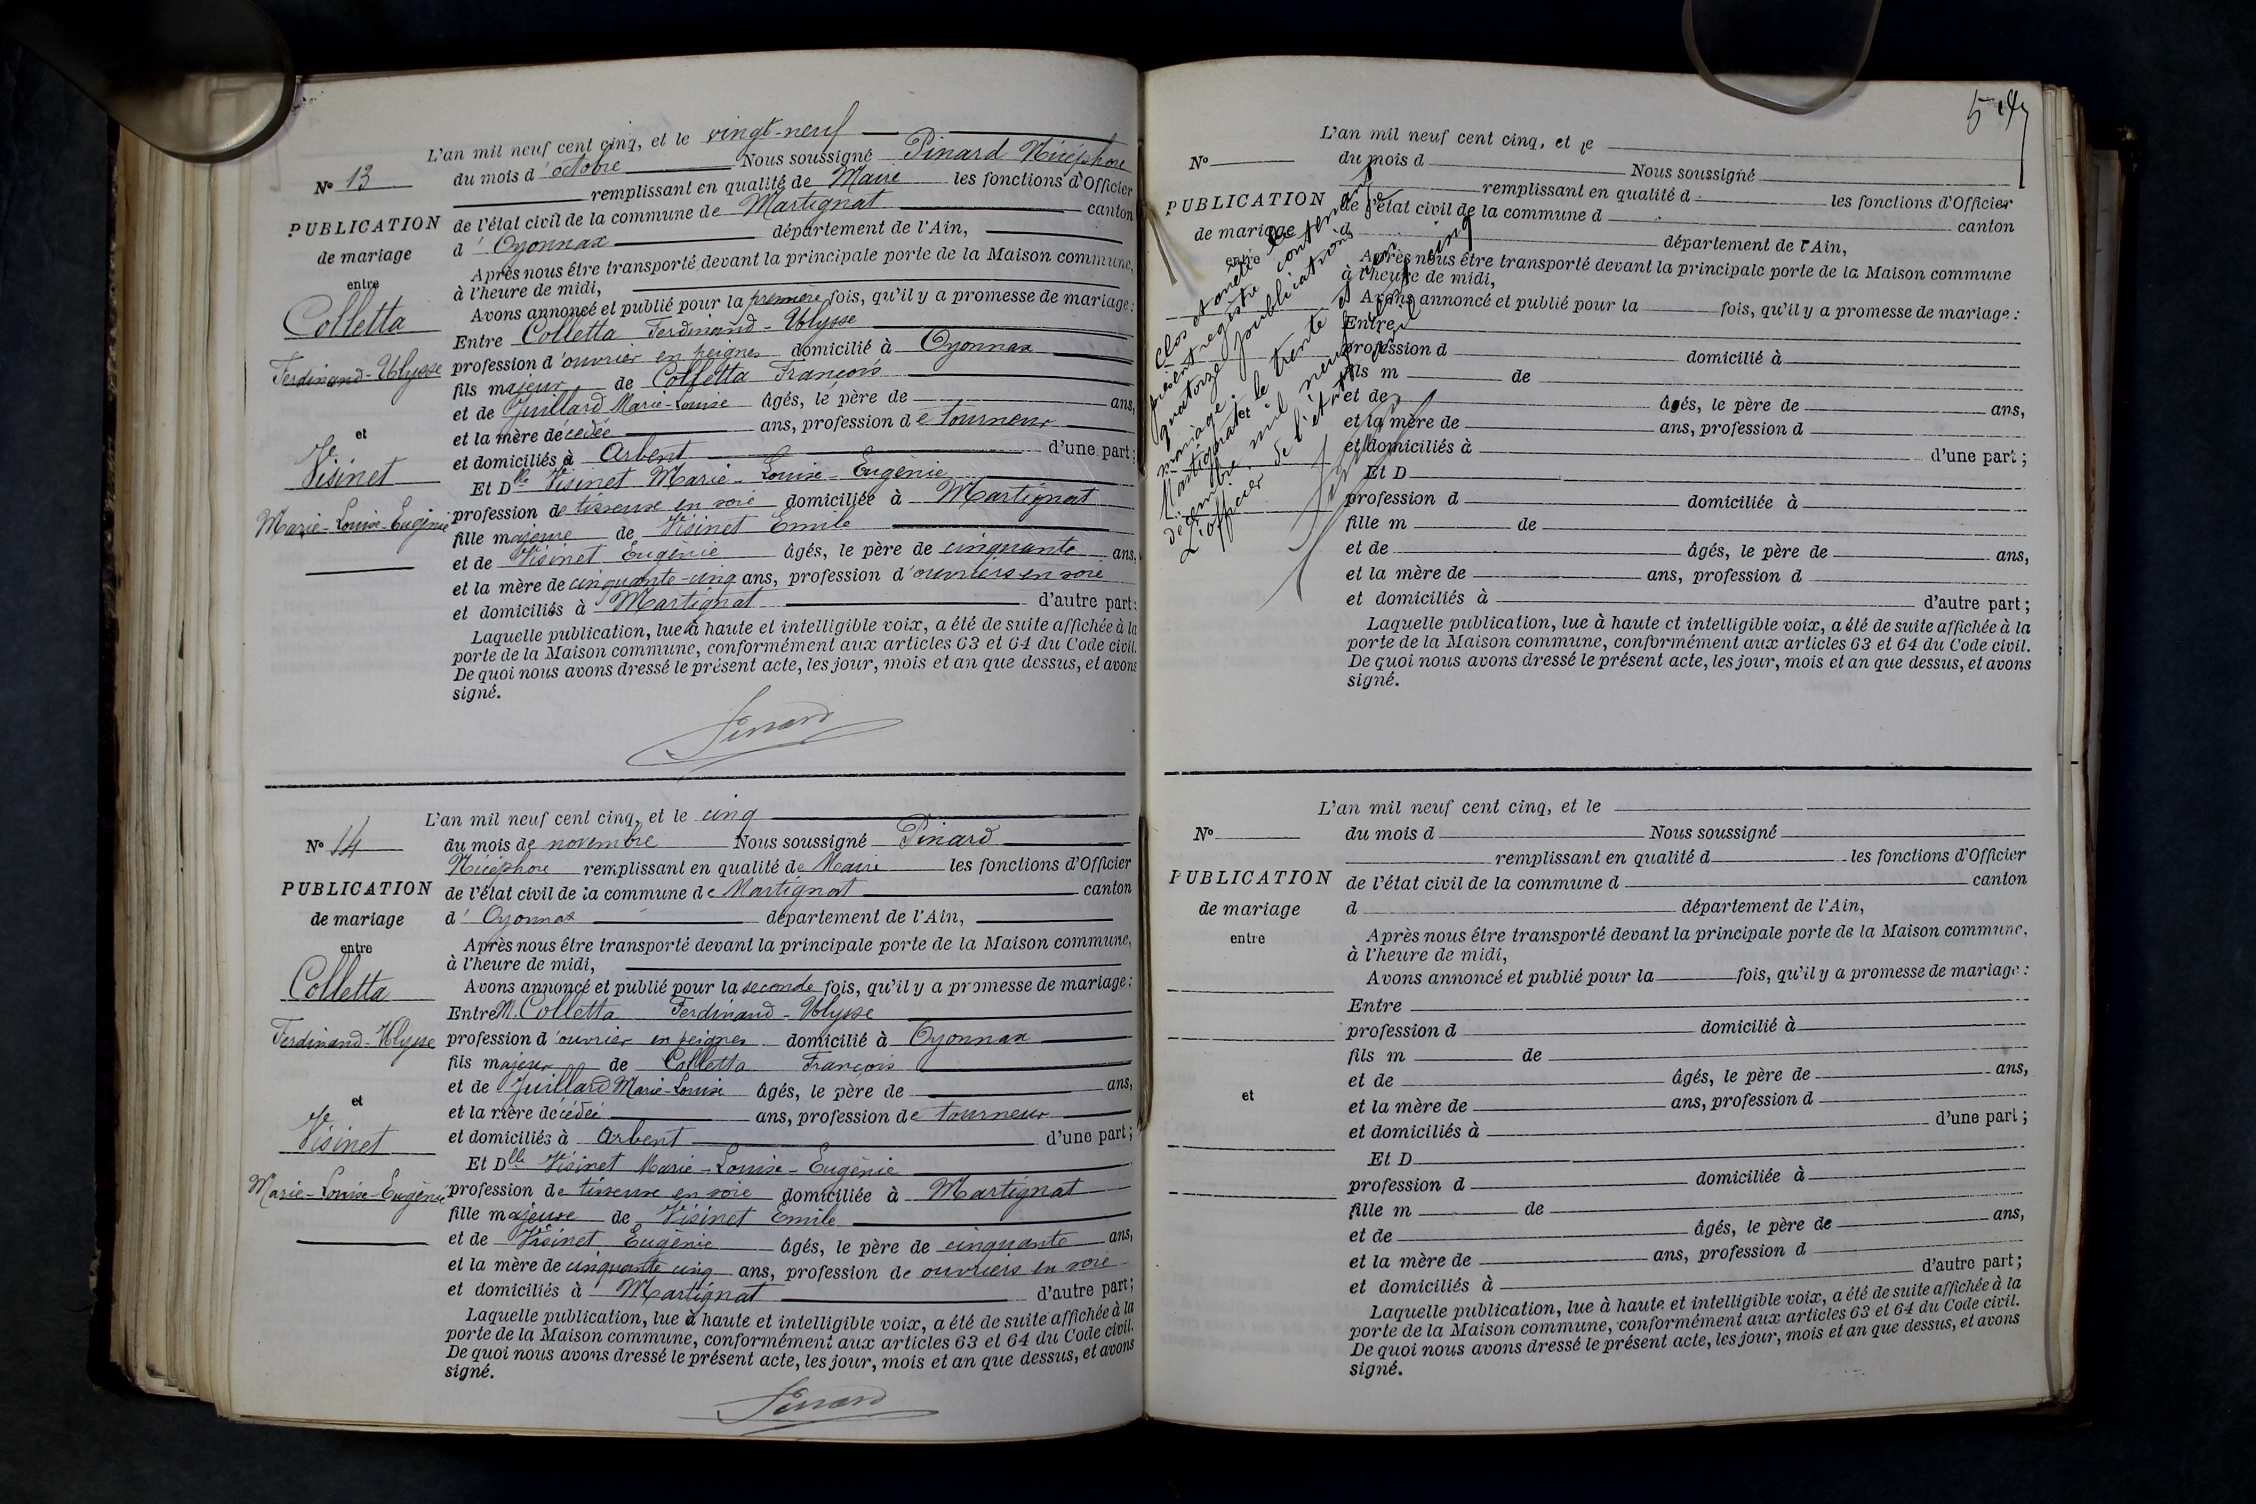 L'an mil neuf cent cinq, et le vingt-neuf
du mois d'octobre Nous soussigné Pinard Nicéphore
N° 13
remplissant en qualité de Maire les fonctions d'Officier
PUBLICATION
de l'état civil de la commune de Martignat canton
de mariage
d'Oyonnax département de l'Ain,
entre
Après nous être transporté devant la principale porte de la Maison commune,
à l'heure de midi,
Avons annoncé et publié pour la première fois, qu'il y a promesse de mariage :
Colletta
Entre Colletta Ferdinand-Ulysse
Ferdinand-Ulysse
profession d'ouvrier en peignes domicilié à Oyonnax
fils majeur de Colletta François
et de Juillard Marie-Louise âgés, le père de ans,
et
et la mère décédée ans, profession de tourneur
et domiciliés à Arbent d'une part ;
Visinet
Et Dlle Visinet Marie-Louise-Eugénie
Marie-Louise-Eugénie
profession de tisseuse en soie domiciliée à Martignat
fille majeure de Visinet Emile
et de Visinet Eugénie âgés, le père de cinquante ans,
et la mère de cinquante-cinq ans, profession d'ouvriers en soie
et domiciliés à Martignat d'autre part ;
Laquelle publication, lue à haute et intelligible voix, a été de suite affichée à la
porte de la Maison commune, conformément aux articles 63 et 64 du Code civil.
De quoi nous avons dressé le présent acte, les jour, mois et an que dessus, et avons
signé.
Pinard
L'an mil neuf cent cinq, et le cinq
N° 14
du mois de novembre Nous soussigné Pinard
Nicéphore remplissant en qualité de Maire les fonctions d'Officier
PUBLICATION
de l'état civil de la commune de Martignat canton
de mariage
d'Oyonnax département de l'Ain,
entre
Après nous être transporté devant la principale porte de la Maison commune,
à l'heure de midi,
Avons annoncé et publié pour la seconde fois, qu'il y a promesse de mariage :
Colletta
Entre M. Colletta Ferdinand-Ulysse
Ferdinand-Ulysse
profession d'ouvrier en peignes domicilié à Oyonnax
fils majeur de Colletta François
et de Juillard Marie-Louise âgés, le père de ans,
et
et la mère décédée ans, profession de tourneur
et domiciliés à Arbent d'une part ;
Visinet
Et Dlle Visinet Marie-Louise-Eugénie
Marie-Louise-Eugénie
profession de tisseuse en soie domiciliée à Martignat
fille majeure de Visinet Emile
et de Visinet Eugénie âgés, le père de cinquante ans,
et la mère de cinquante cinq ans, profession de ouvriers en soie
et domiciliés à Martignat d'autre part ;
Laquelle publication, lue à haute et intelligible voix, a été de suite affichée à la
porte de la Maison commune, conformément aux articles 63 et 64 du Code civil.
De quoi nous avons dressé le présent acte, les jour, mois et an que dessus, et avons
signé.
Pinard
L'an mil neuf cent cinq, et le
N°
du mois d Nous soussigné
remplissant en qualité d les fonctions d'Officier
PUBLICATION
de l'état civil de la commune d canton
de mariage
d département de l'Ain,
entre
Après nous être transporté devant la principale porte de la Maison commune
à l'heure de midi,
Avons annoncé et publié pour la fois, qu'il y a promesse de mariage :
Entre
profession d domicilié à
fils m de
et de âgés, le père de ans,
et la mère de ans, profession d
et domiciliés à d'une part ;
Et D
profession d domiciliée à
fille m de
et de âgés, le père de ans,
et la mère de ans, profession d
et domiciliés à d'autre part ;
Laquelle publication, lue à haute et intelligible voix, a été de suite affichée à la
porte de la Maison commune, conformément aux articles 63 et 64 du Code civil.
De quoi nous avons dressé le présent acte, les jour, mois et an que dessus, et avons
signé.
Clos et arrêté le
présent registre contenant
quatorze publications de
mariage.
Martignat le trente et un
décembre mil neuf cent cinq
L'officier de l'état civil
Pinard
L'an mil neuf cent cinq, et le
N°
du mois d Nous soussigné
remplissant en qualité d les fonctions d'Officier
PUBLICATION
de l'état civil de la commune d canton
de mariage
d département de l'Ain,
entre
Après nous être transporté devant la principale porte de la Maison commune,
à l'heure de midi,
Avons annoncé et publié pour la fois, qu'il y a promesse de mariage :
Entre
profession d domicilié à
fils m de
et de âgés, le père de ans,
et
et la mère de ans, profession d
et domiciliés à d'une part ;
Et D
profession d domiciliée à
fille m de
et de âgés, le père de ans,
et la mère de ans, profession d
et domiciliés à d'autre part ;
Laquelle publication, lue à haute et intelligible voix, a été de suite affichée à la
porte de la Maison commune, conformément aux articles 63 et 64 du Code civil.
De quoi nous avons dressé le présent acte, les jour, mois et an que dessus, et avons
signé.